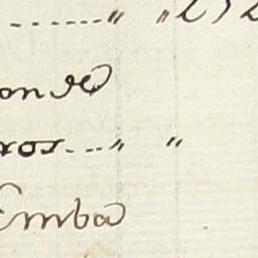 -------„ „
onde
ros---„ „
Emba